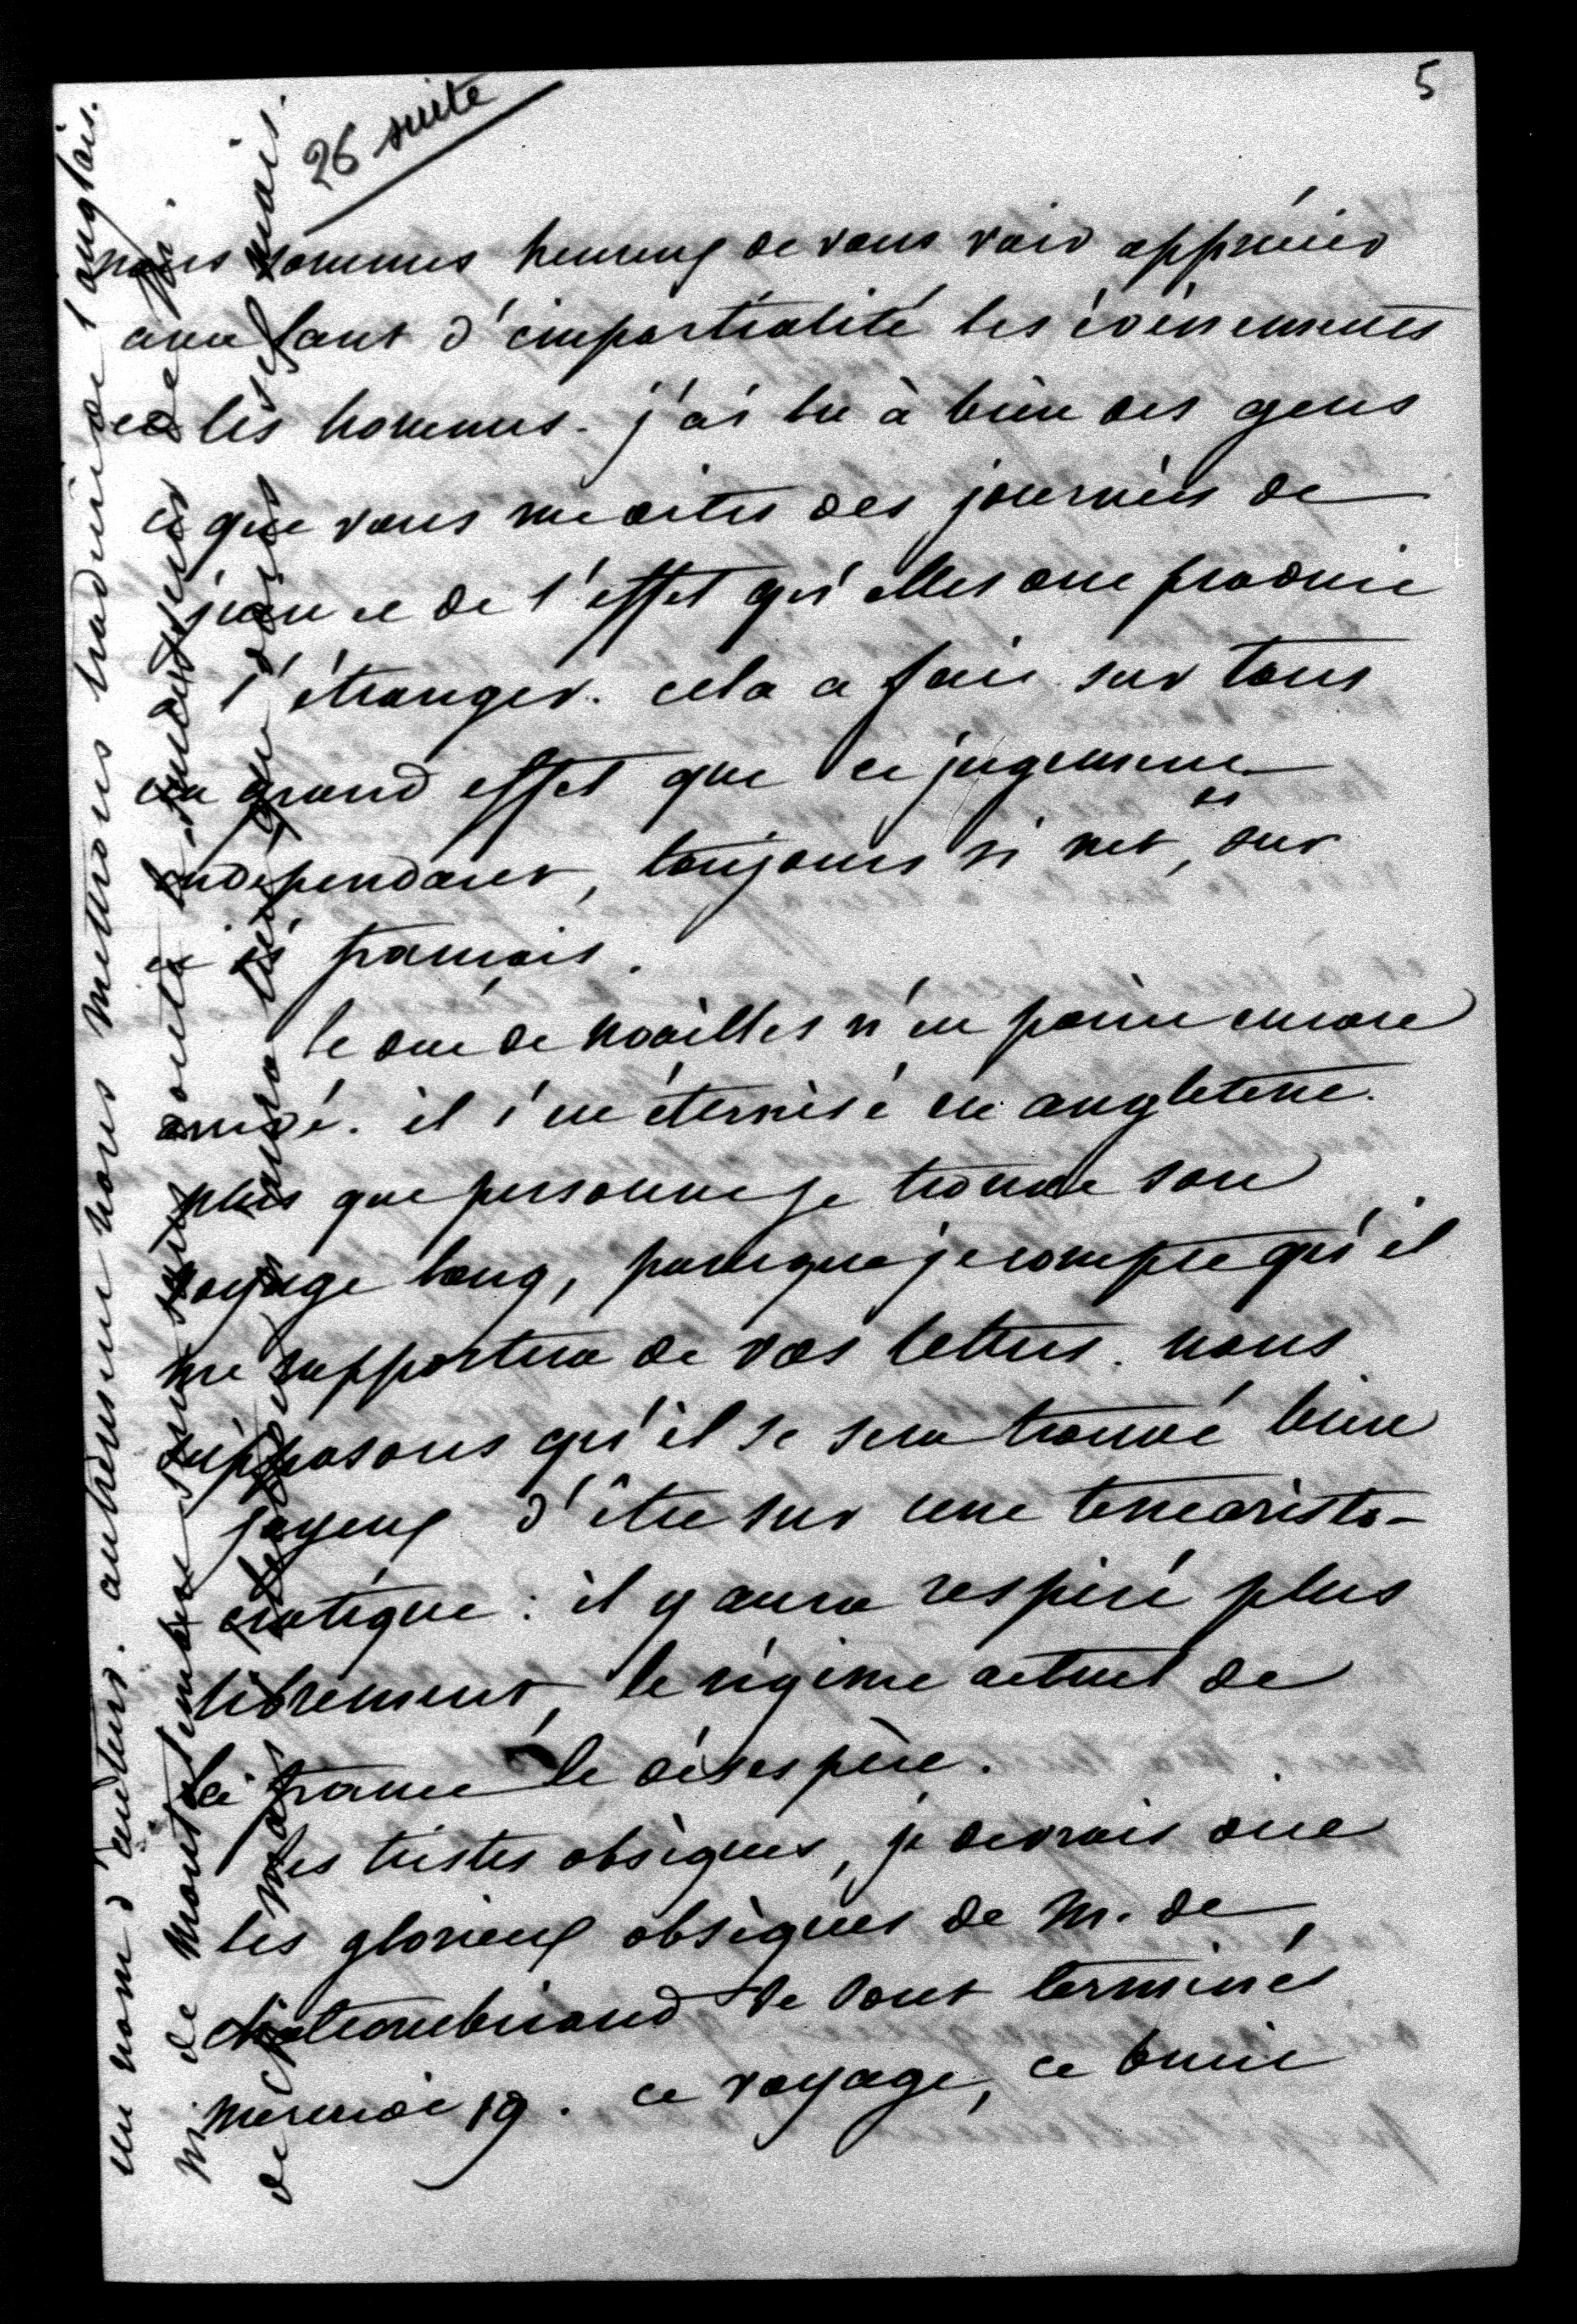 5
26 suite
nous sommes heureux de vous voir apprécier
avec tant d'impartialité les évènements
et les hommes. j'ai lu à bien des gens
ce que vous me dites des journées de
juin et de l'effet qu'elles ont produit
l'étranger. cela a fait sur tous
un grand effet que ce jugement
independant, toujours si net, et sur
et si français.
le duc de noailles n'est point encore
arrivé. il s'est éternisé en angleterre.
plus que personne je trouve son
voyage long, parceque je compte qu'il
me rapportera de vos lettres. nous
supposons qu'il se sera trouvé bien
joyeux d'être sur une terre aristo-
cratique : il y aura respiré plus
librement, le régime actuel de
la france le désespère.
les tristes obsèques, je devrais dire
les glorieux obsèques de M. de
chateaubriand se sont terminés
mercredi 19. ce voyage, ce bruit
de chateaubriand
M. de Montalembert
un nom d'auteur. autrement nous mettrons traduit de l'anglais.